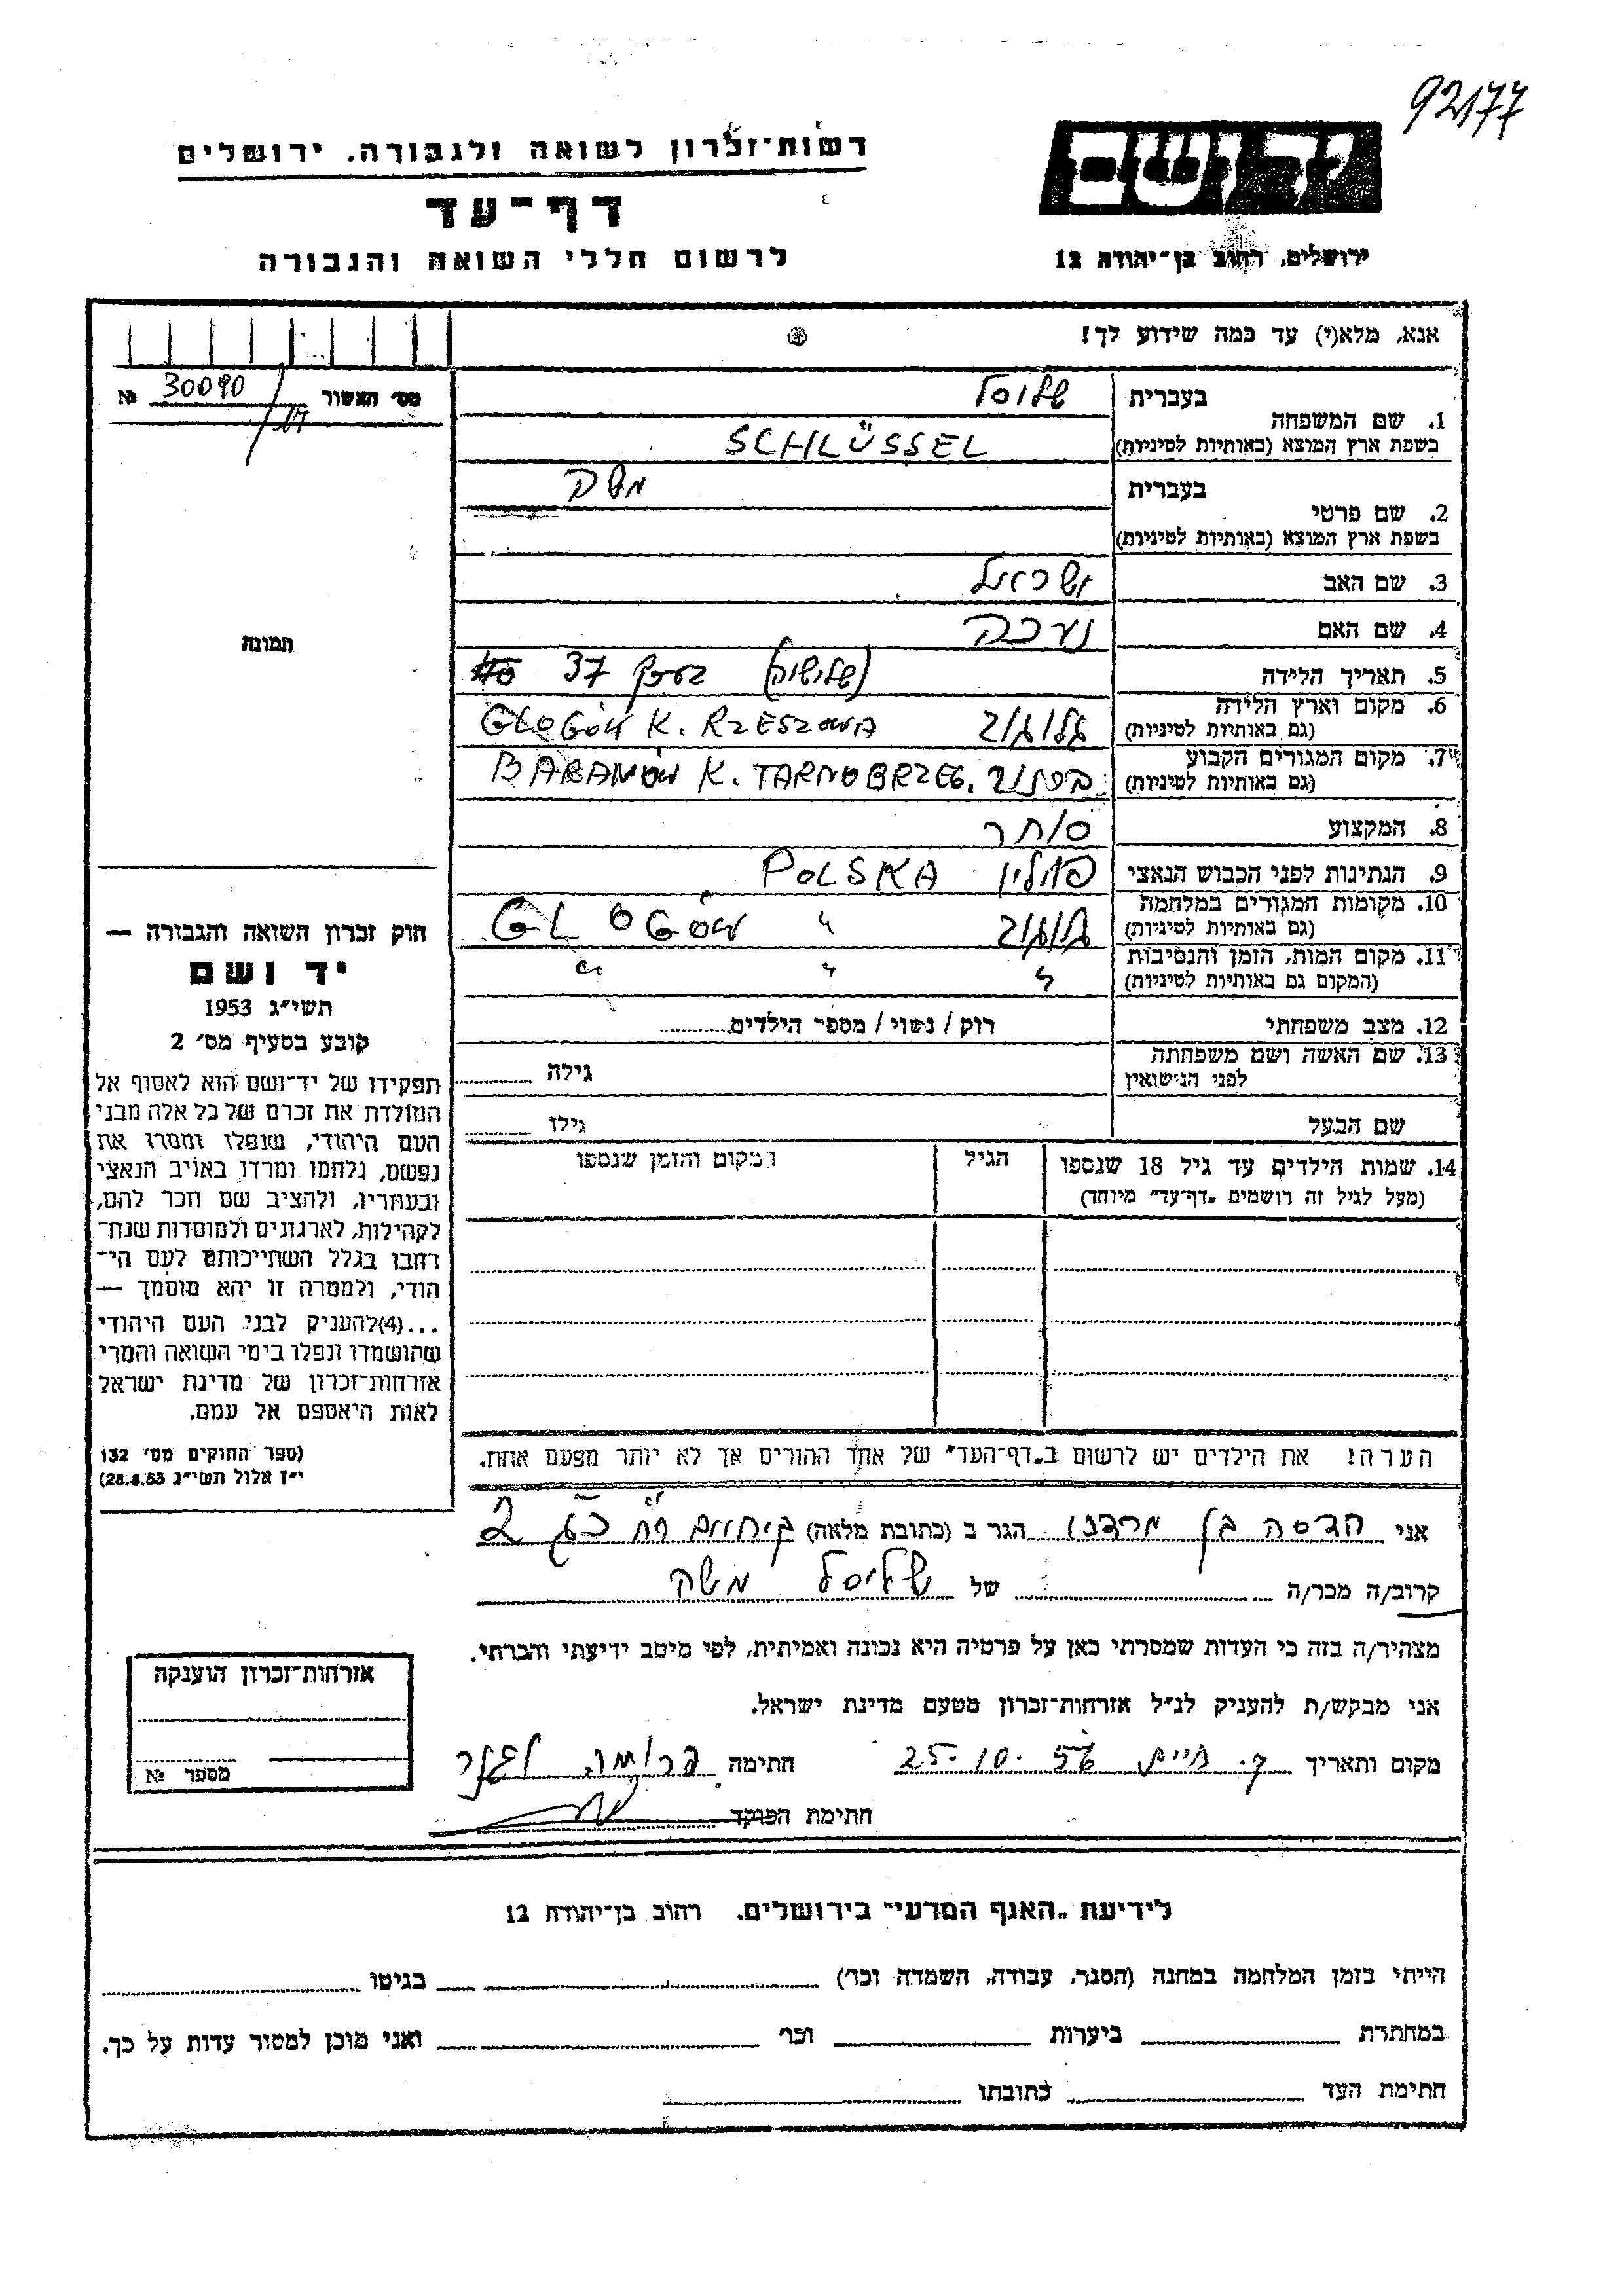 92177
יד ושם
ירושלים, רחוב בן־יהודה 12
רשות־זכרון לשואה ולגבורה, ירושלים
דף־עד
לרשום חללי השואה והגבורה
אנא, מלא(י) עד כמה שידוע לך!
מס׳ האשור 30090 №
1. שם המשפחה
בעברית שלוסל
בשפת ארץ המוצא (באותיות לטיניות) SCHLÜSSEL
2. שם פרטי
בעברית משה
בשפת ארץ המוצא (באותיות לטיניות)
3. שם האב ישראל
4. שם האם
5. תאריך הלידה 37
6. מקום וארץ הלידה
(גם באותיות לטיניות) גלוגוב GLOGÓW K. RZESZOWA
7. מקום המגורים הקבוע
(גם באותיות לטיניות) BARANÓW K. TARNOBRZEG.
8. המקצוע סוחר
9. הנתינות לפני הכבוש הנאצי פולין POLSKA
10. מקומות המגורים במלחמה
(גם באותיות לטיניות) גלוגוב " GLOGÓW
11. מקום המות, הזמן והנסיבות
(המקום גם באותיות לטיניות) " " "
12. מצב משפחתי רוק / נשוי / מספר הילדים
13. שם האשה ושם משפחתה
לפני הנישואין גילה
שם הבעל גילו
14. שמות הילדים עד גיל 18 שנספו
(מעל לגיל זה רושמים „דף־עד” מיוחד)
הגיל
מקום והזמן שנספו
תמונה
חוק זכרון השואה והגבורה —
יד ושם
תשי״ג 1953
קובע בסעיף מס׳ 2
תפקידו של יד־ושם הוא לאסוף אל
המולדת את זכרם של כל אלה מבני
העם היהודי, שנפלו ומסרו את
נפשם, נלחמו ומרדו באויב הנאצי
ובעוזריו, ולהציב שם וזכר להם,
לקהילות, לארגונים ולמוסדות שנח־
רבו בגלל השתייכותם לעם הי־
הודי, ולמטרה זו יהא מוסמך —
...(4)להעניק לבני העם היהודי
שהושמדו ונפלו בימי השואה והמרי
אזרחות־זכרון של מדינת ישראל
לאות היאספם אל עמם.
(ספר החוקים מס׳ 132
י״ז אלול תשי״ג 28.8.53)
הערה! את הילדים יש לרשום ב„דף־העד” של אחד ההורים אך לא יותר מפעם אחת.
אני הדסה בן מרדכי הגר ב (כתובת מלאה) 2
קרוב/ה מכר/ה של שליסל משה
מצהיר/ה בזה כי העדות שמסרתי כאן על פרטיה היא נכונה ואמיתית, לפי מיטב ידיעתי והכרתי.
אני מבקש/ת להעניק לנ״ל אזרחות־זכרון מטעם מדינת ישראל.
מקום ותאריך ק. חיים 25.10.56 חתימה
חתימת הפוקד
אזרחות־זכרון הוענקה
מספר №
לידיעת „האגף המדעי” בירושלים. רחוב בן־יהודה 12
הייתי בזמן המלחמה במחנה (הסגר, עבודה, השמדה וכו׳) בגיטו
במחתרת ביערות וכו׳ ואני מוכן למסור עדות על כך.
חתימת העד כתובתו